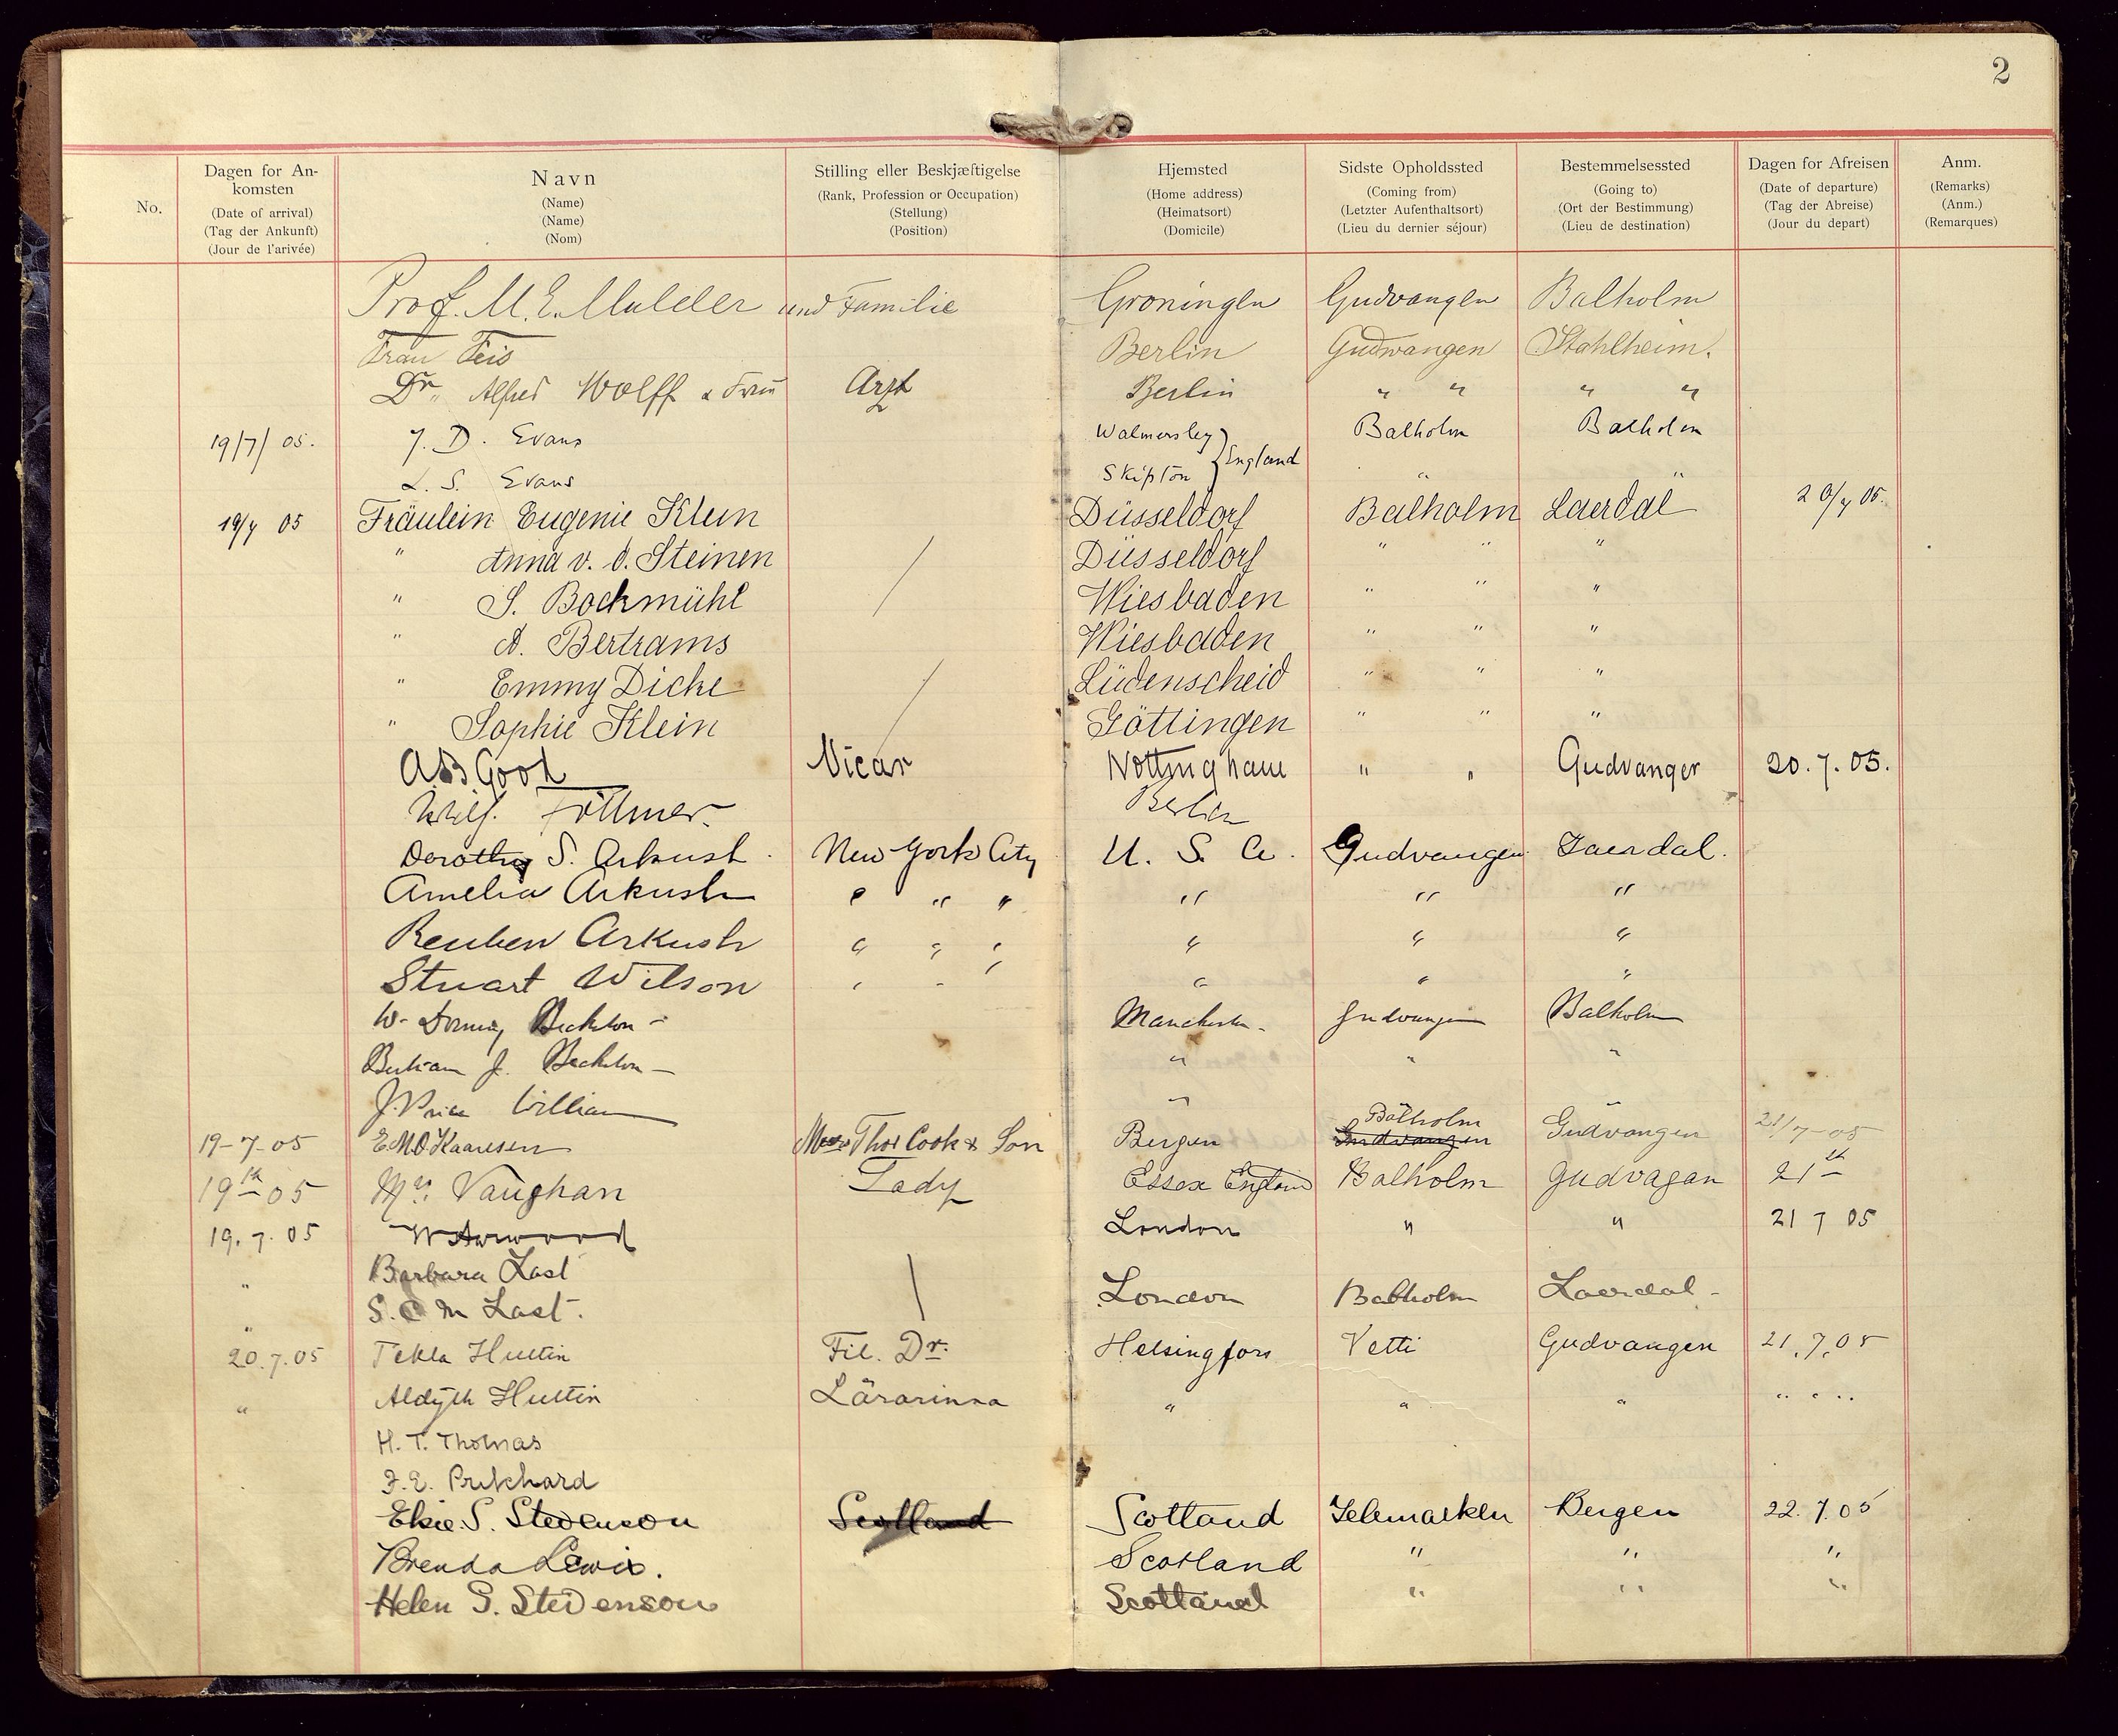 2
No.
Dagen for An-
komsten
(Date of arrival)
(Tag der Ankunft)
(Jour de l'arivée)
Navn
(Name)
(Name)
(Nom)
Stilling eller Beskjæftigelse
(Rank, Profession or Occupation)
(Stellung)
(Position)
Hjemsted
(Home address)
(Heimatsort)
(Domicile)
Sidste Opholdssted
(Coming from)
(Letzter Aufenthaltsort)
(Lieu du dernier séjour)
Bestemmelsessted
(Going to)
(Ort der Bestimmung)
(Lieu de destination)
Dagen for Afreisen
(Date of departure)
(Tag der Abreise)
(Jour du depart)
Anm.
(Remarks)
(Anm.)
(Remarques)
Prof. M. E. Mulder und Familie Groningen Gudvangen Balholm
Frau Feis Berlin Gudwangen Stahlheim.
Dr. Alfred Wolff & Frau Arzt Berlin " " " "
19/7/05. J. D. Evans Walmersley Balholm Balholm
L. S. Evans Skipton } England " "
19/7 05 Fräulein Eugenie Klein Düsseldorf Balholm Laerdal 20/7 05.
" Anna v. d. Steinen Düsseldorf " " "
" S. Bockmühl Wiesbaden " " "
" A. Bertrams Wiesbaden " " "
" Emmy Dicke Lüdenscheid " " "
" Sophie Klein Göttingen " " "
A.B. Good Vicar Nottingham " " Gudvanger 20.7.05.
Berlin
Dorothy S. Arkush. New York City U. S. A. Gudvangen Laerdal.
Amelia Arkush " " " " " "
Reuben Arkush " " " " " "
Stuart Wilson " " " " "
W. Beckton - Manchester - Gudvangen Balholm
J. Beckton - " " "
J. Price William " "
19-7-05 E.M.O. Kaaresen Messrs Thos Cook & Son Bergen Balholm Gudvangen Gudvangen 21/7-05
19th 05 Mrs. Vaughan Lady Essex England Balholm Gudvagan 21st
19.7.05 London " " 21 7 05
" Barbara Last
" S. C. M Last. London Balholm Laerdal -
20.7.05 Tekla Hultin Fil. Dr. Helsingfors Vetti Gudvangen 21.7.05
" Aldyth Hultin Lärarinna " " " " " "
H. T. Thomas
F. E. Pritchard
Elsie S. Stevenson Scotland Scotland Telemarken Bergen 22.7.05
Brenda Lewis. Scotland " " "
Helen G. Stevenson Scotland " " "